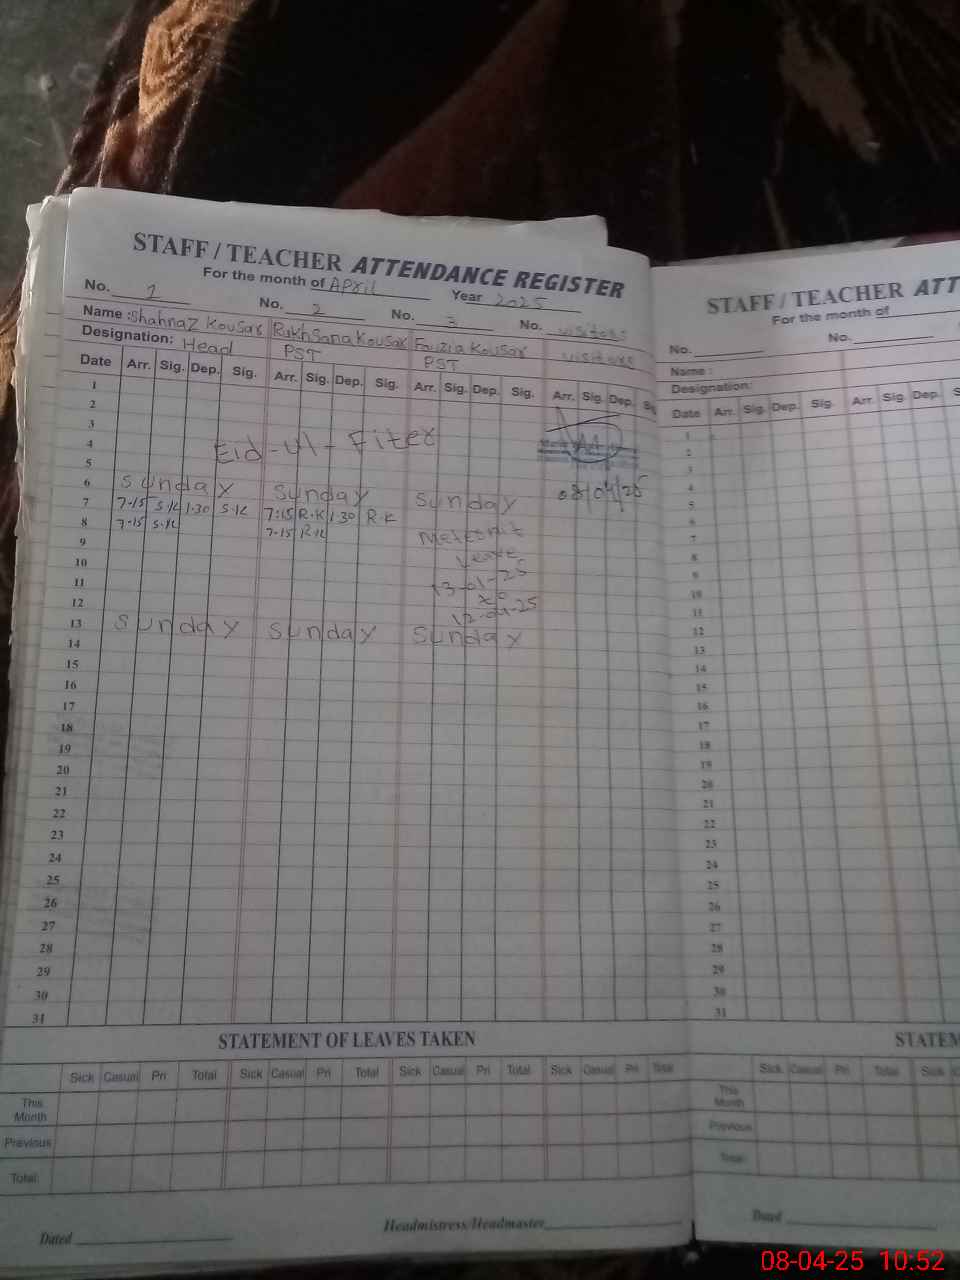 STAFF / TEACHER ATTENDANCE REGISTER
For the month of April Year 2025
No. 1 No. 2 No. 3 No. visitors
Name : Shahnaz Kousar Rukhsana Kousar Fauzia Kousar visitors
Designation: Head PST PST
Date Arr. Sig. Dep. Sig. Arr. Sig. Dep. Sig. Arr. Sig. Dep. Sig. Arr. Sig. Dep. Sig
1
2
3
4 Eid-ul-Fiter
5
6 Sunday Sunday Sunday 08/04/25
7 7-15 S.K 1.30 S.K 7:15 R.K 1.30 R.K
8 7-15 S.K 7-15 R.K
9
10
11 13-01-25
12 12-04-25
13 Sunday Sunday Sunday
14
15
16
17
18
19
20
21
22
23
24
25
26
27
28
29
30
31
STATEMENT OF LEAVES TAKEN
Sick Casual Pri Total Sick Casual Pri Total Sick Casual Pri Total Sick Casual Pri Total
This Month
Previous
Total:
Dated Headmistress/Headmaster
STAFF / TEACHER ATT
For the month of
No. No.
Name :
Designation:
Date Arr. Sig. Dep. Sig. Arr. Sig. Dep.
1
2
3
4
5
6
7
8
9
10
11
12
13
14
15
16
17
18
19
20
21
22
23
24
25
26
27
28
29
30
31
STATEM
Sick Casual Pri Total Sick
This Month
Previous
Total:
Dated
08-04-25 10:52